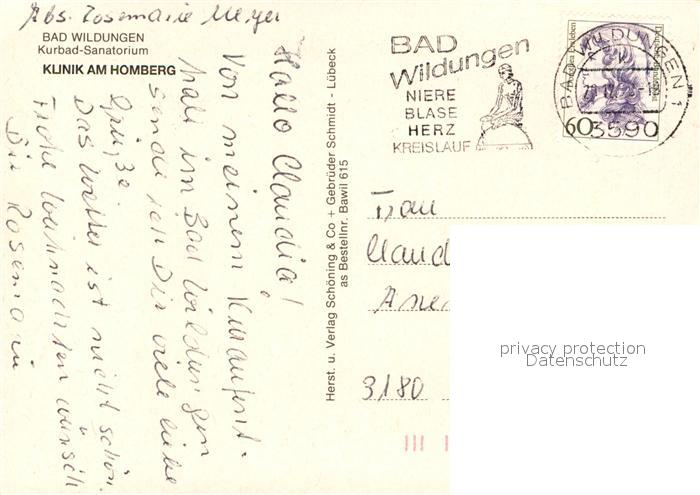 Abs. Rosemarie Meyer
BAD WILDUNGEN
Kurbad-Sanatorium
KLINIK AM HOMBERG
Hallo Claudia!
Von meinem Kuraufent-
halt in Bad Wildungen
sende ich Dir viele liebe
Grüße.
Das Wetter ist nicht schön.
Frohe Weihnachten wünsch
Dir Rosemarie
Herst. u. Verlag Schöning & Co + Gebrüder Schmidt - Lübeck
as Bestellnr. Bawil 615
BAD
Wildungen
NIERE
BLASE
HERZ
KREISLAUF
BAD WILDUNGEN 1
3590
60
Frau
Claud
3180
privacy protection
Datenschutz